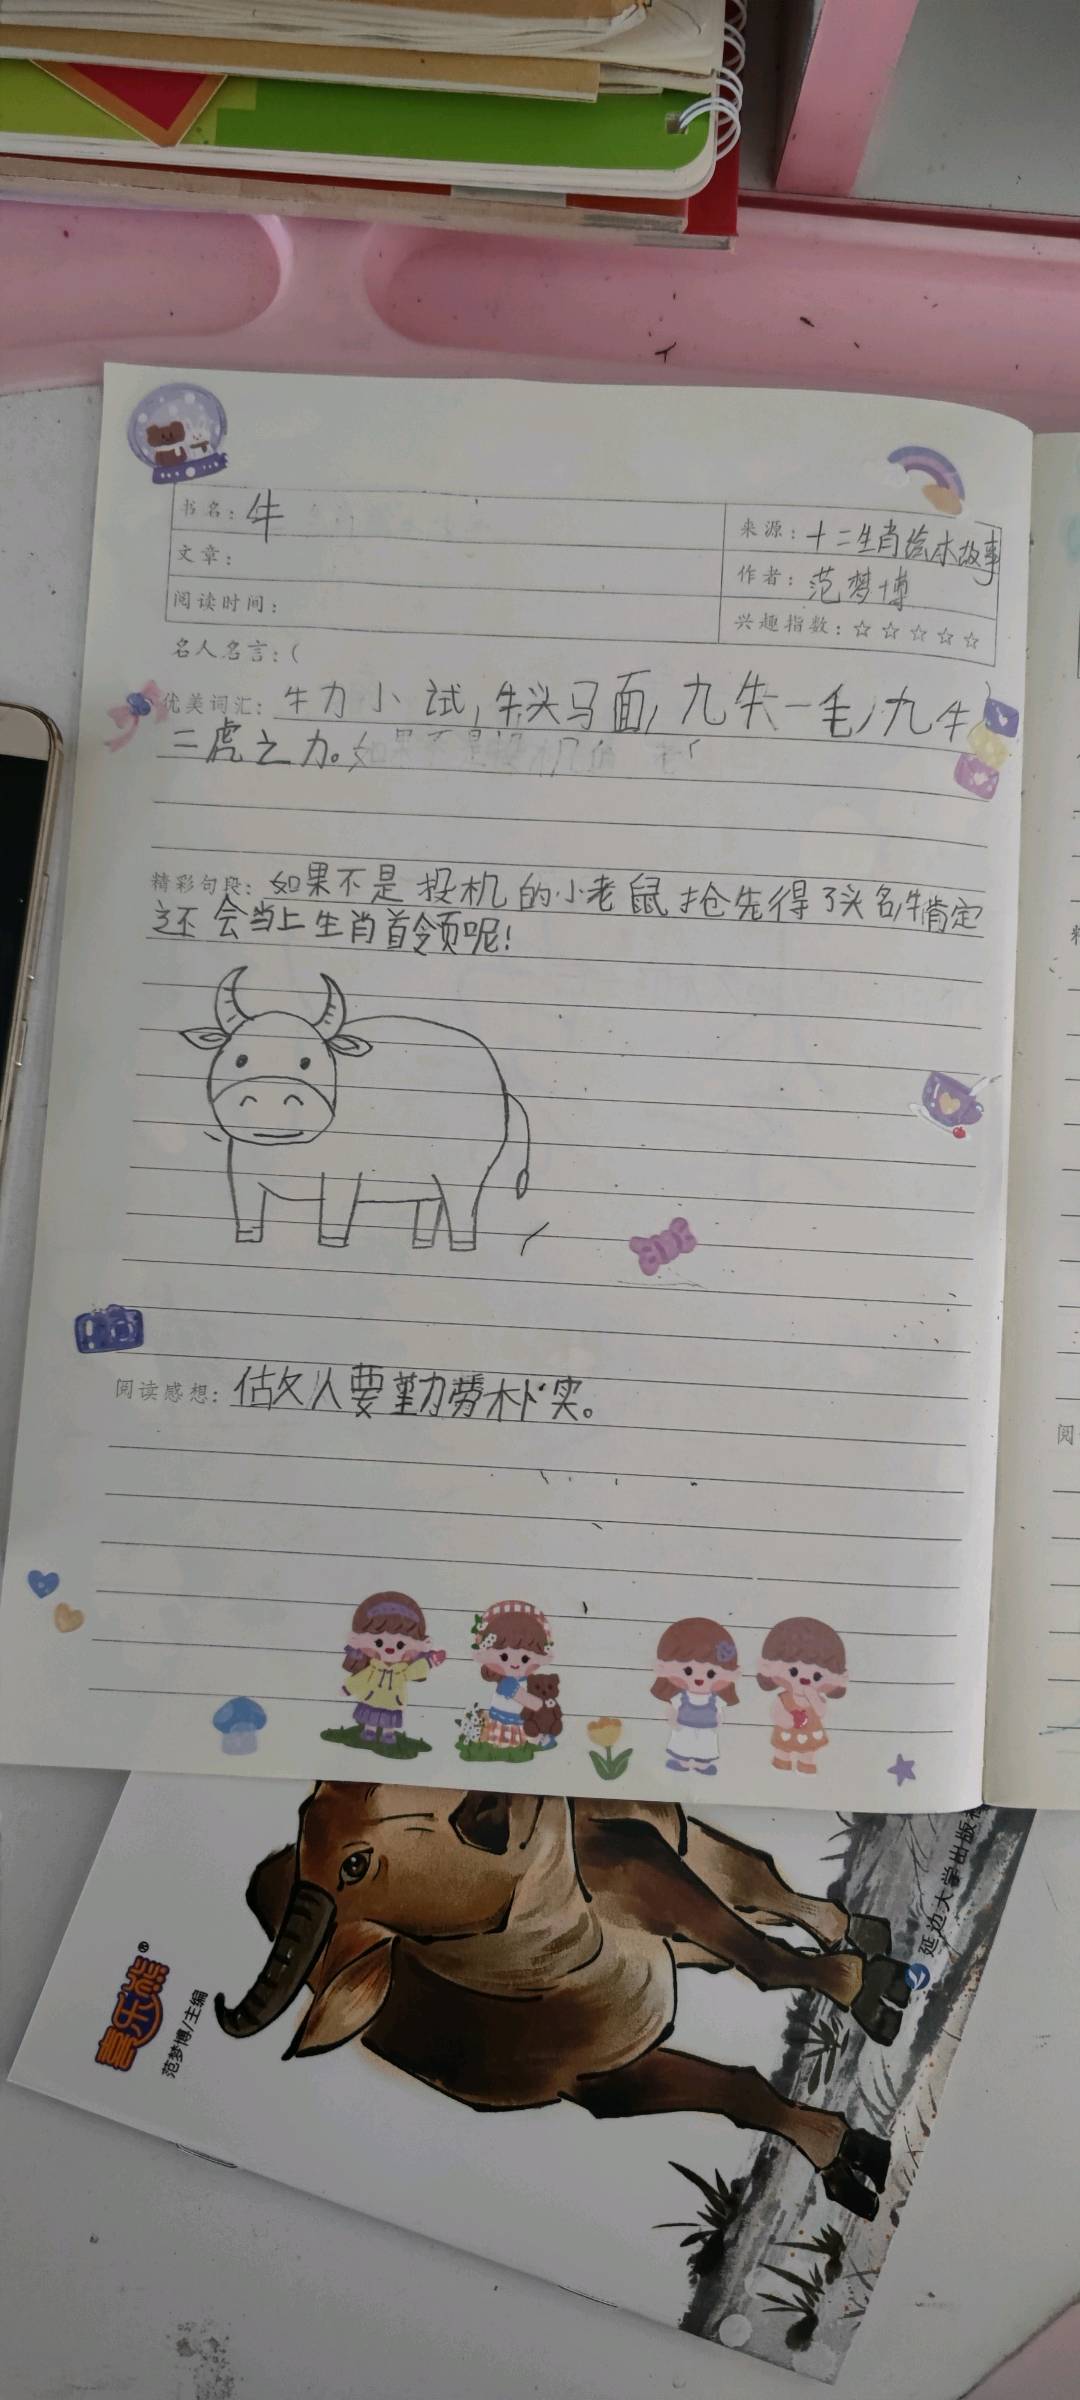 书名：牛
来源：十二生肖绘本故事
文章：
作者：范梦博
阅读时间：
兴趣指数：☆☆☆☆☆
名人名言：(
优美词汇：牛力小试，牛头马面，九牛一毛，九牛
二虎之力。如果不是投机
精彩句段：如果不是投机的小老鼠抢先得了头名,牛肯定
还会当上生肖首领呢！
阅读感想：做人要勤劳朴实。
阅
喜乐熊®
范梦博/主编
延边大学出版社